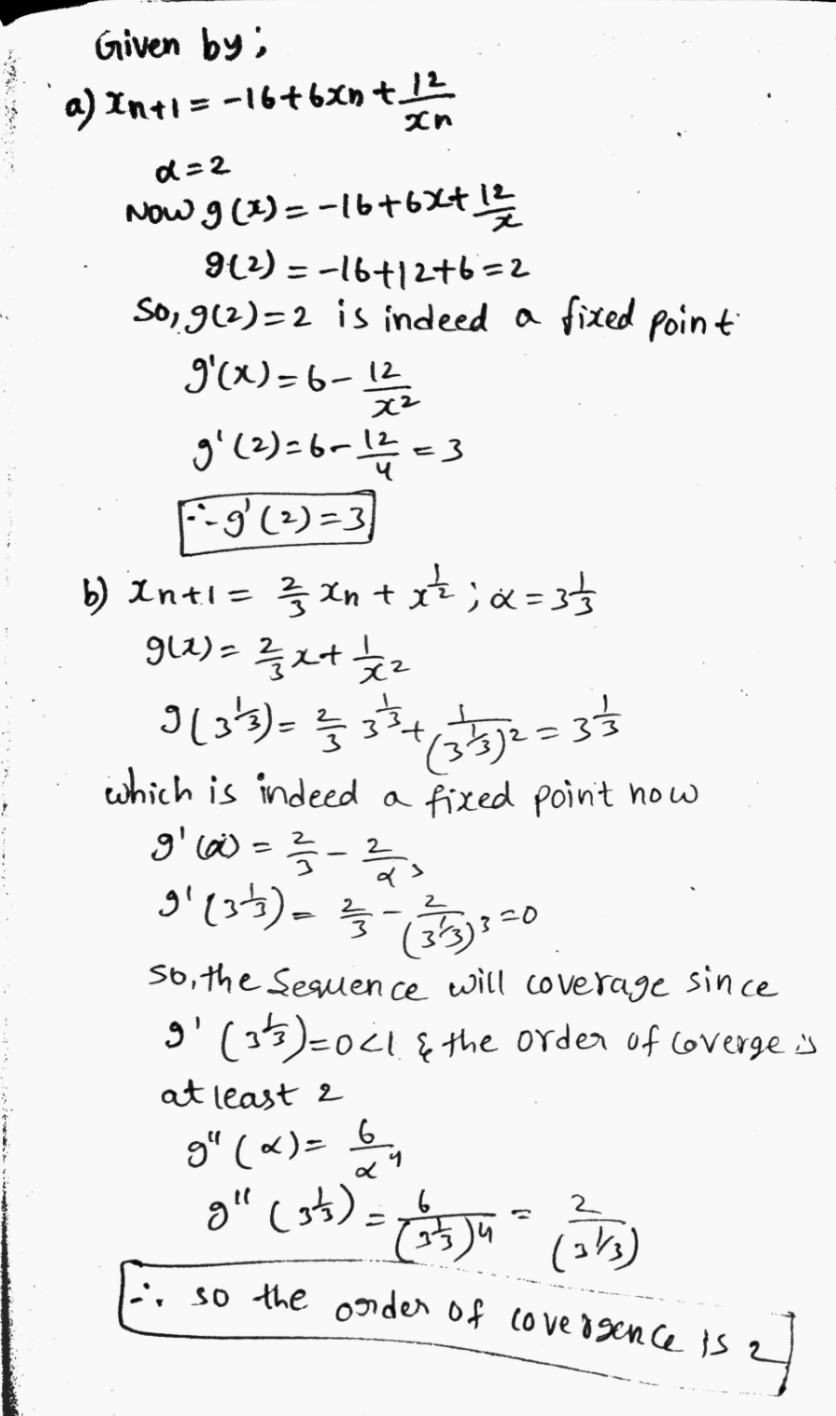 Given by;
a) xn+1 = -16+6xn + 12/xn
α=2
Now g(x) = -16+6x+ 12/x
g(2) = -16+12+6=2
So, g(2)=2 is indeed a fixed point
g'(x)=6- 12/x²
g'(2)=6- 12/4 = 3
∴ g'(2)=3
b) xn+1 = 2/3 xn + x^1/2 ; α = 3^1/3
g(x)= 2/3 x + 1/x²
g(3^1/3)= 2/3 3^1/3 + 1/(3^1/3)² = 3^1/3
which is indeed a fixed point now
g'(α) = 2/3 - 2/α³
g'(3^1/3) = 2/3 - 2/(3^1/3)³ =0
so, the Sequence will coverage since
g'(3^1/3)=0<1 & the order of coverge is
at least 2
g"(α)= 6/α⁴
g"(3^1/3) = 6/(3^1/3)⁴ = 2/(3^1/3)
∴ so the order of covergence is 2